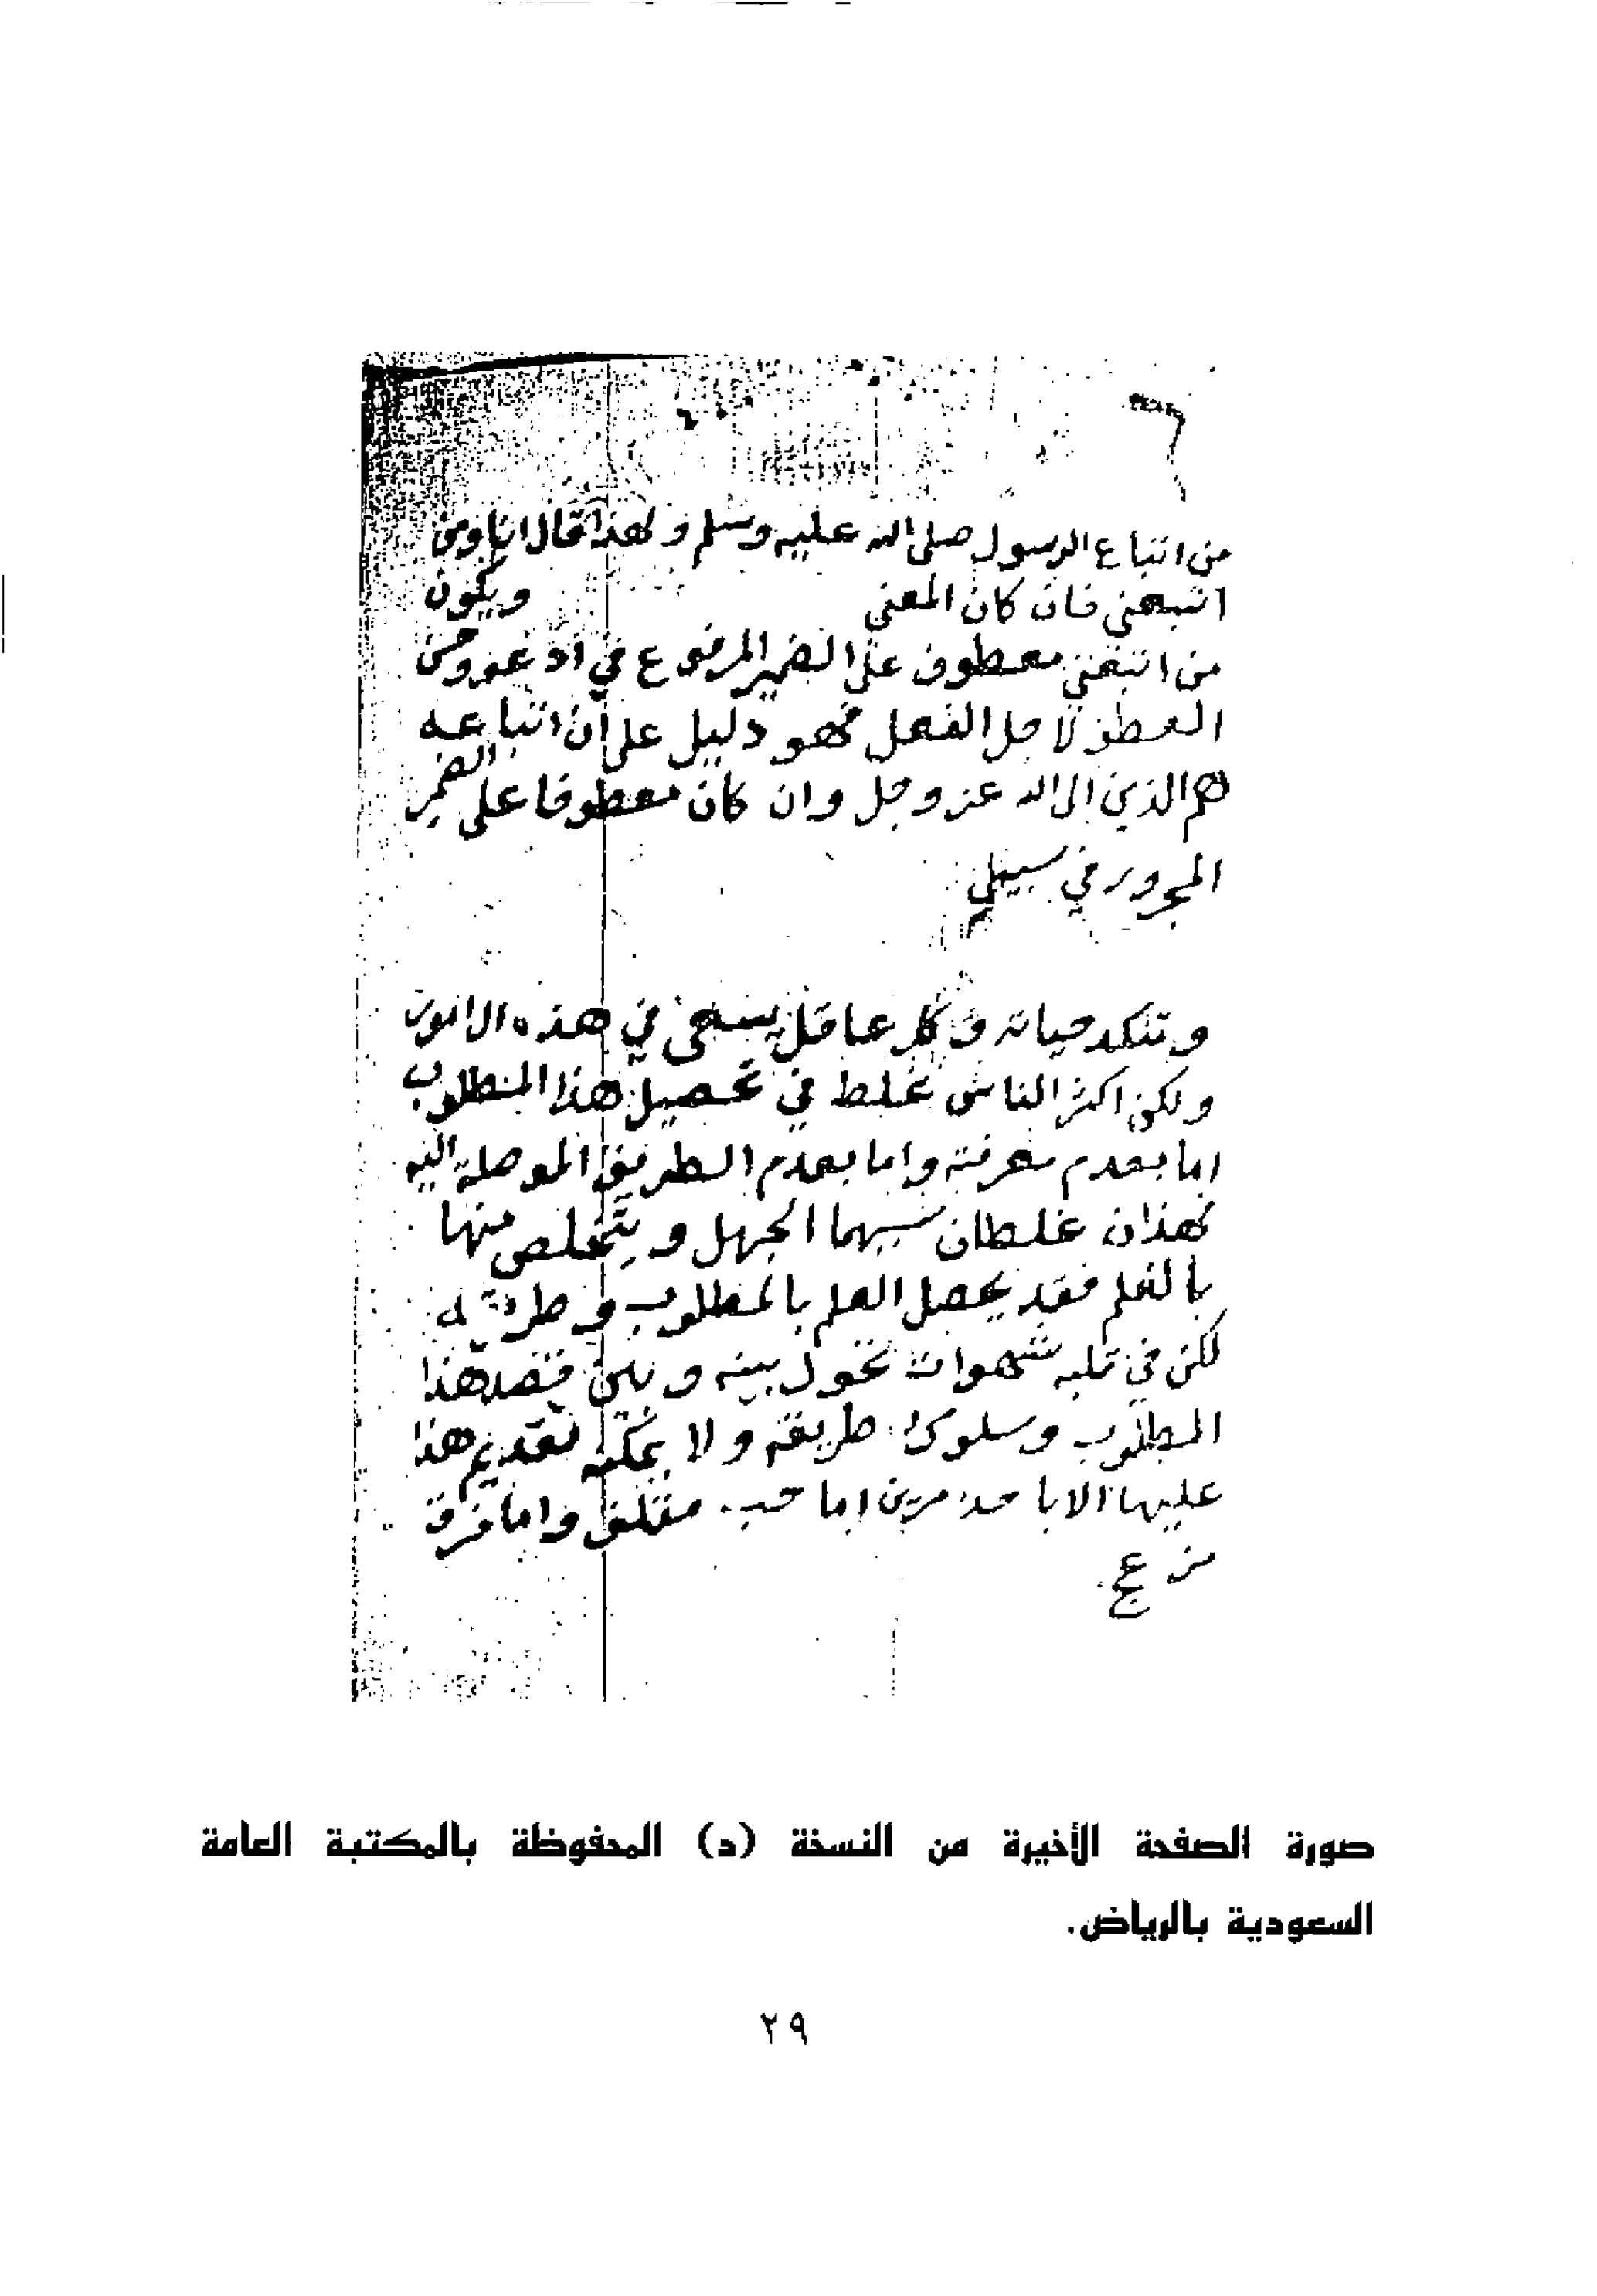 من اتباع الرسول صلى الله عليه وسلم ولهذا قال انا ومن
اتبعني فان كان المعنى ويكون
من اتبعني معطوف على الضمير المرفوع في ادعو وحسن
العطف لاجل الفصل فهو دليل على ان اتباعه
هم الذين الى الله عز وجل وان كان معطوفا على الضمير
المجرور في سبيلي
وتنكد حياته وكل عاقل يسعى في هذه الامور
ولكن اكثر الناس غلط في تحصيل هذا المطلوب
اما بعدم معرفته واما بعدم الطريق الموصلة اليه
فهذان غلطان سببهما الجهل ويتخلص منها
بالعلم فقد يحصل العلم بالمطلوب وطريقه
لكن في قلبه شهوات تحول بينه وبين قصد هذا
المطلوب وسلوك طريقه ولا يمكنه تقديم هذا
عليها الا باحد مرين اما حب مقلق واما فرق
مزعج
صورة الصفحة الأخيرة من النسخة (د) المحفوظة بالمكتبة العامة
السعودية بالرياض.
٢٩